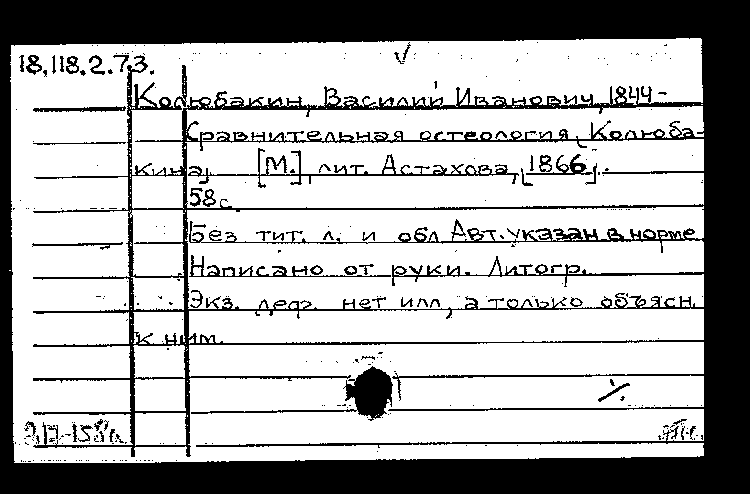 18.118.2.7.3.
Колюбакин, Василий Иванович, 1844-
Сравнительная остеология [Колюба-
кина] [М.], лит. Астахова, [1866].
58 с.
Без тит. л. и обл Авт. указан в норме
Написано от руки. Литогр.
Экз. деф. нет илл, а только объясн.
к ним.